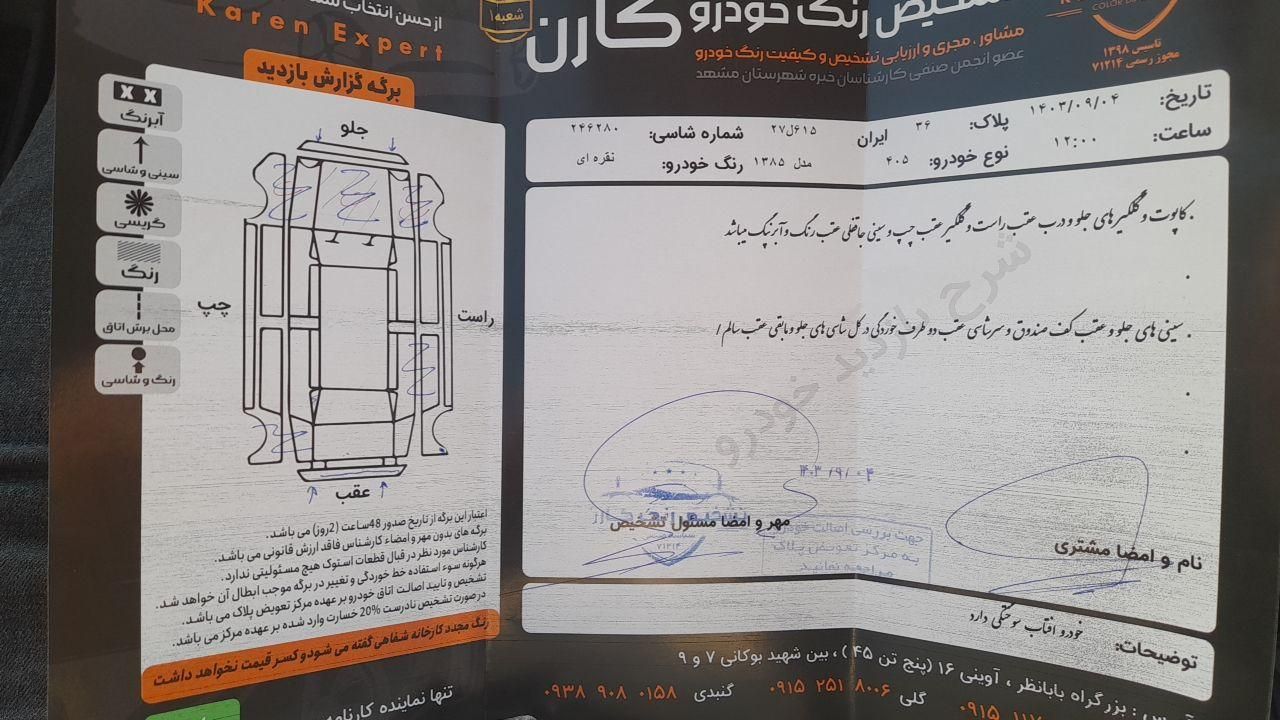 تشخیص رنگ خودرو کارن
مشاور ، مجری و ارزیابی تشخیص و کیفیت رنگ خودرو
عضو انجمن صنفی کارشناسان خبره شهرستان مشهد
تاسیس ۱۳۹۸
مجوز رسمی ۷۱۲۱۴
شعبه ۱
از حسن انتخاب
Karen Expert
برگه گزارش بازدید
تاریخ: ۱۴۰۳/۰۹/۰۴ پلاک: ۳۶ ایران ۶۱۵ل۲۷ شماره شاسی: ۲۴۶۲۸۰
ساعت: ۱۲:۰۰ نوع خودرو: ۴۰۵ مدل ۱۳۸۵ رنگ خودرو: نقره ای
. کاپوت و گلگیرهای جلو و درب عقب راست و گلگیر عقب چپ و سینی جاقفلی عقب رنگ و آبرنگ میباشد
. سینی های جلو و عقب کف صندوق و سرشاسی عقب دو طرف خوردگی در کل شاسی های جلو و مابقی عقب سالم /
شرح بازدید خودرو
آبرنگ
سینی و شاسی
گریسی
رنگ
محل برش اتاق
رنگ و شاسی
جلو
چپ
راست
عقب
۱۴۰۳/۹/۰۴
مهر و امضا مسئول تشخیص
۷۱۲۱۴
جهت بررسی اصالت خودرو
به مرکز تعویض پلاک
مراجعه نمائید
نام و امضا مشتری
اعتبار این برگه از تاریخ صدور 48ساعت (2روز) می باشد.
برگه های بدون مهر و امضاء کارشناس فاقد ارزش قانونی می باشد.
کارشناس مورد نظر در قبال قطعات استوک هیچ مسئولیتی ندارد.
هرگونه سوء استفاده خط خوردگی و تغییر در برگه موجب ابطال آن خواهد شد.
تشخیص و تایید اصالت اتاق خودرو بر عهده مرکز تعویض پلاک می باشد.
در صورت تشخیص نادرست 20% خسارت وارد شده بر عهده مرکز می باشد.
رنگ مجدد کارخانه شفاهی گفته می شود و کسر قیمت نخواهد داشت
توضیحات: خودرو افتاب سوختگی دارد
: بزرگراه بابانظر ، آوینی ۱۶ (پنج تن ۴۵) ، بین شهید بوکانی ۷ و ۹
گلی ۰۹۱۵ ۲۵۱ ۸۰۰۶ گنبدی ۰۹۳۸ ۹۰۸ ۰۱۵۸
تنها نماینده کارنامه